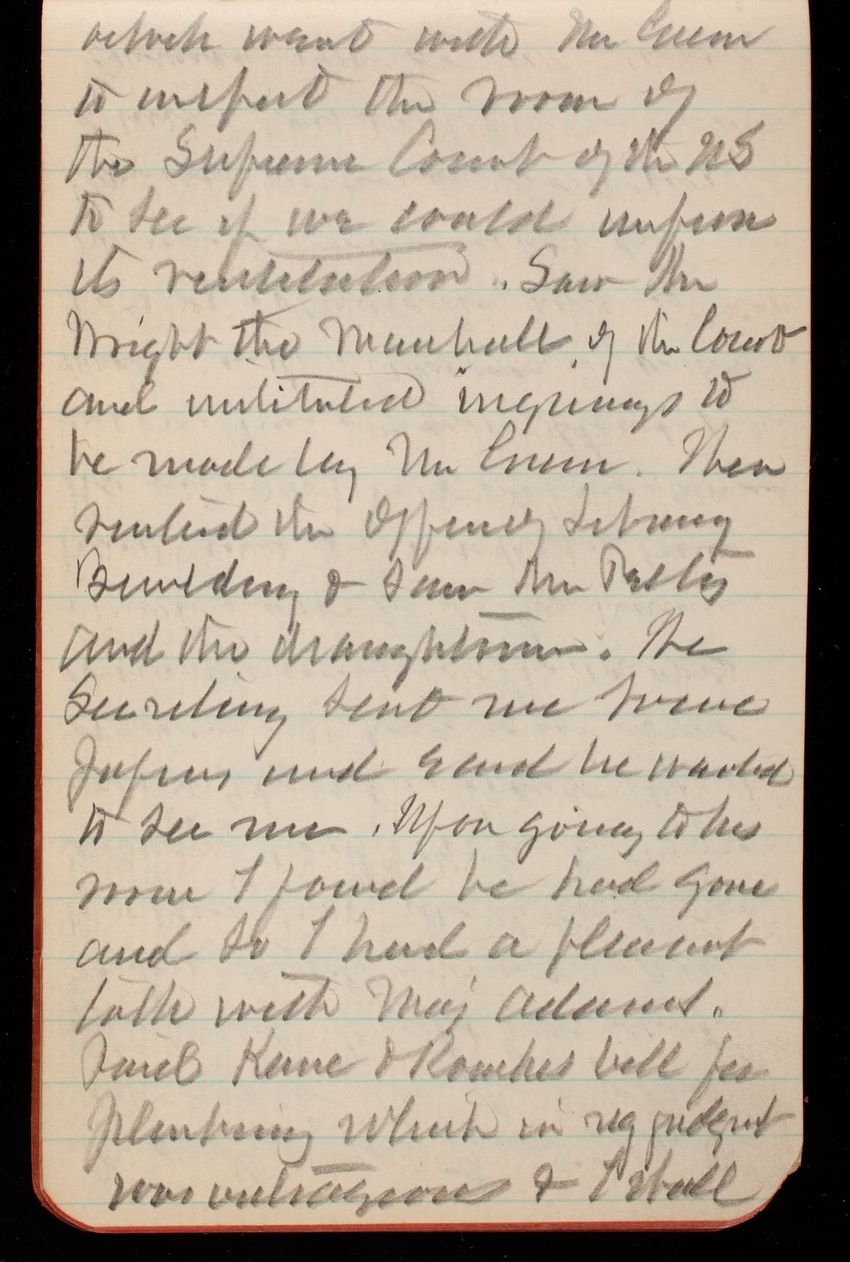 which went with Mr Green
to inspect the room of
the Supreme Court of the US
to see if we could improve
its ventilation. Saw Mr
Wright the Marshall of the Court
and instituted inquirys to
be made by Mr Green. Then
visited the Army Library
Building & saw Mr
and the draughtsmen. The
Secretary sent me some
papers and said he wanted
to see me. Upon going to his
room I found he had gone
and so I had a pleasant
talk with Maj Adams.
Paid Kane & Roaches bill for
Plumbing which in my judgment
was outrageous & I shall